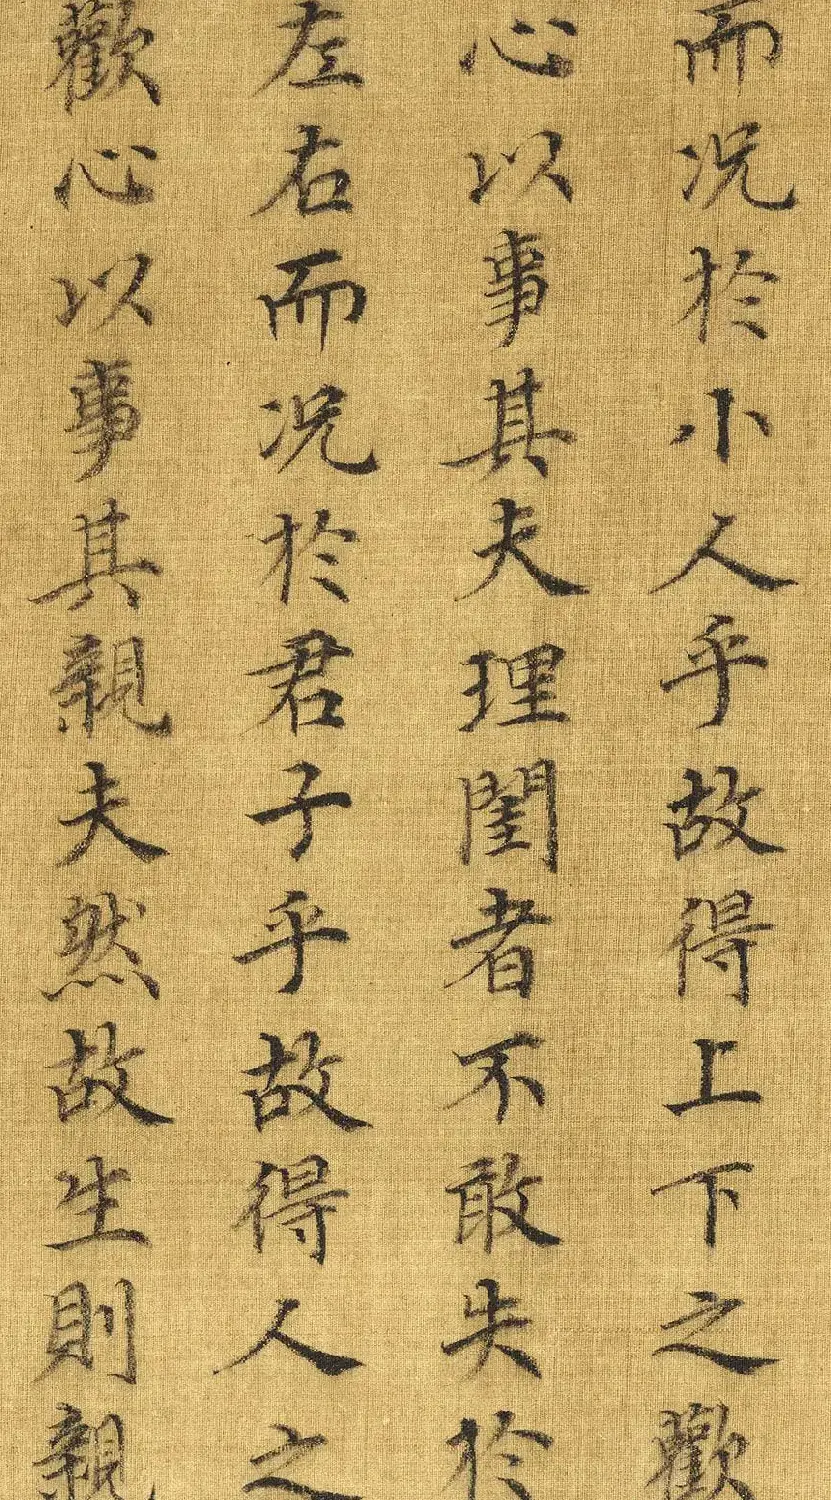 而况於小人乎故得上下之歡
心以事其夫理閨者不敢失於
左右而况於君子乎故得人之
歡心以事其親夫然故生則親